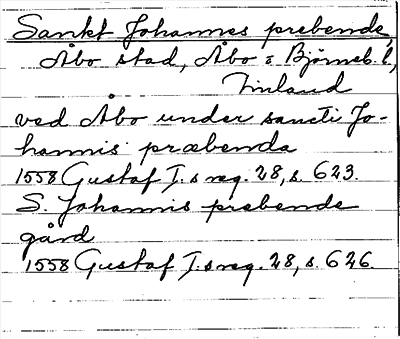 Sankt Johannes prebende,
Åbo stad, Åbo o Björneb. l,
Finland
ved Åbo under sancti Jo-
hannis præbenda
1558 Gustaf I:s reg. 28, s. 623.
S. Johannis prebende
gård
1558 Gustaf I:s reg. 28, s. 626.